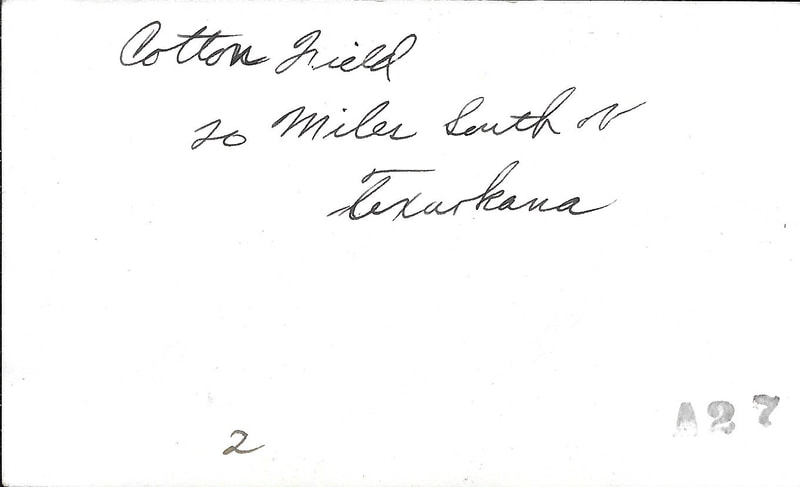 Cotton Field
20 Miles South of
Texarkana
2
A27